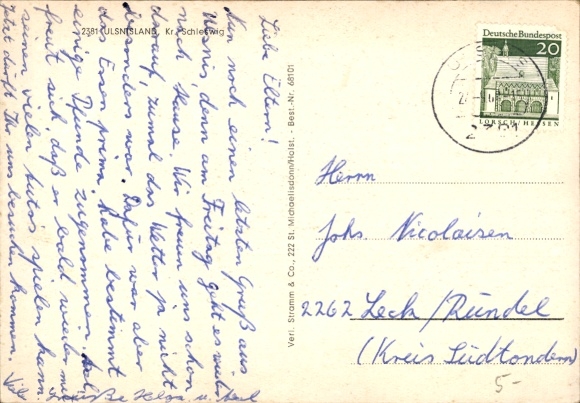 2381 ULSNISLAND, Kr. Schleswig
Liebe Eltern!
Nun noch einen letzten Gruß aus
Ulsnis, denn am Freitag geht es wieder
nach Hause. Wir freuen uns schon
darauf, zumal das Wetter ja nicht
besonders war. Dafür war aber
das Essen prima, habe bestimmt
einige Pfunde zugenommen.
freut sich, daß er bald wieder mit
seinen vielen Autos spielen kann.
Jetzt dürft Ihr uns besuchen kommen.
Viele Grüße Helga u.
Verl. Stramm & Co., 222 St. Michaelisdonn/Holst. - Best.-Nr. 68101
Deutsche Bundespost
20
LORSCH/HESSEN
Herrn
Johs Nicolaisen
2262 Leck/Ründel
(Kreis Südtondern)
5-